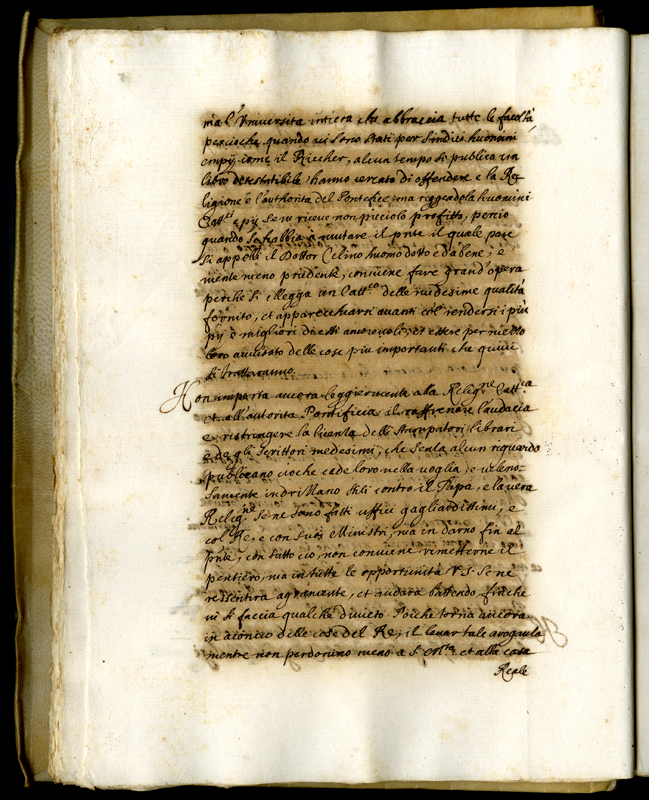 ma l'Università intiera che abbraccia tutte le facoltà,
percioche quando vi sono stati per sindici huomini
empij, come il Richer, alcun tempo si publica un
libro detestabile, hanno cercato di offendere e la Re-
ligione e l'authorità del Pontefice, ma reggendola huomini
Catt.ci e pij se ne riceve non picciolo profitto, perciò
quando s'habbia à mutare il pnte il quale pare
si appelli il Dottor Celino huomo dotto e da bene, e
niente meno prudente, conviene fare grand'opera
perche si elegga un Catt.co delle medesime qualità
fornito, et apparecchiarsi avanti col rendersi i più
pij e migliori di essi amorevoli, et essere per mezzo
loro avvisato delle cose più importanti che quivi
si trattaranno.
Non importa ancora leggiermente alla Relig.ne Catt.ca
et all'autorità Pontificia il raffrenare l'audacia
e ristringere la licenza delli stampatori librari
e degli scrittori medesimi, che senza alcun riguardo
publicano cioche cade loro nella voglia, e veleno-
samente indrizzano stili contro il Papa, e la vera
Relig.ne se ne sono fatti uffici gagliardissimi, e
col Rè, e con suoi Ministri, ma in darno fin al
pnte, con tutto ciò non conviene rimetterne il
pensiero, ma in tutte le opportunità V.S. se ne
ressentirà agramente, et andarà battendo finche
vi si faccia qualche divieto. Poiche torna ancora
in acconcio delle cose del Rè, il levar tale
mentre non perdonino meno a S. M.tà et alla casa
Reale